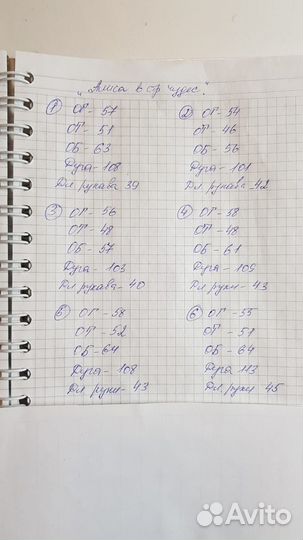 "Алиса в стр чудес"
① ОГ - 57
ОТ - 51
ОБ - 63
Дуга - 108
Дл. рукава 39
② ОГ - 54
ОТ - 46
ОБ - 56
Дуга - 101
Дл. рукава - 42
③ ОГ - 56
ОТ - 48
ОБ - 57
Дуга - 103
Дл рукава - 40
④ ОГ - 58
ОТ - 48
ОБ - 61
Дуга - 105
Дл руки - 43
⑤ ОГ - 58
ОТ - 52
ОБ - 64
Дуга - 108
Дл. руки - 43
⑥ ОГ - 55
ОТ - 51
ОБ - 64
Дуга 113
Дл. руки 45
Avito